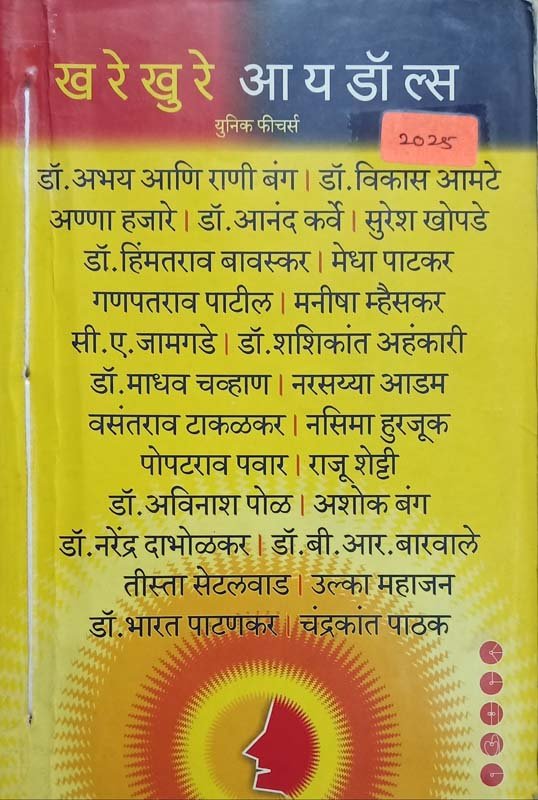 खरेखुरे आयडॉल्स
युनिक फीचर्स
2025
डॉ.अभय आणि राणी बंग | डॉ.विकास आमटे
अण्णा हजारे | डॉ.आनंद कर्वे | सुरेश खोपडे
डॉ.हिंमतराव बावस्कर | मेधा पाटकर
गणपतराव पाटील | मनीषा म्हैसकर
सी.ए.जामगडे | डॉ.शशिकांत अहंकारी
डॉ.माधव चव्हाण | नरसय्या आडम
वसंतराव टाकळकर | नसिमा हुरजूक
पोपटराव पवार | राजू शेट्टी
डॉ.अविनाश पोळ | अशोक बंग
डॉ.नरेंद्र दाभोळकर | डॉ.बी.आर.बारवाले
तीस्ता सेटलवाड | उल्का महाजन
डॉ.भारत पाटणकर | चंद्रकांत पाठक